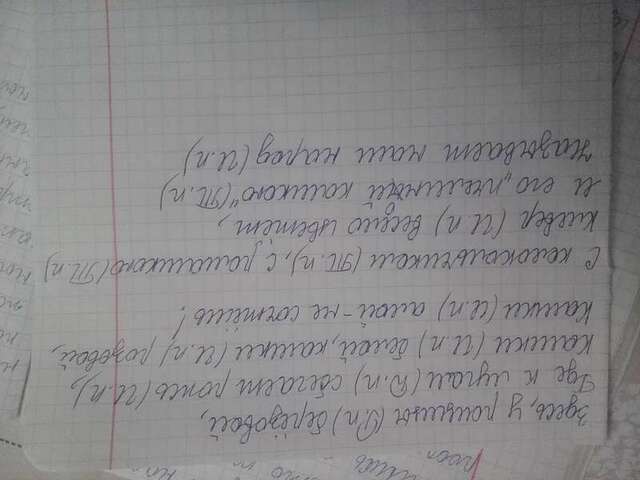 Здесь, у рощицы (Р.п) берёзовой,
Где к лугам (Д.п) сбегает рожь (И.п),
Кашки (И.п) белой, кашки (И.п) розовой,
Кашки (И.п) алой - не сочтёшь!
С колокольчиком (Т.п), с ромашкою (Т.п)
Клевер (И.п) весело цветёт,
И его „пчелиный кашкою" (Т.п)
Называет наш народ (И.п)